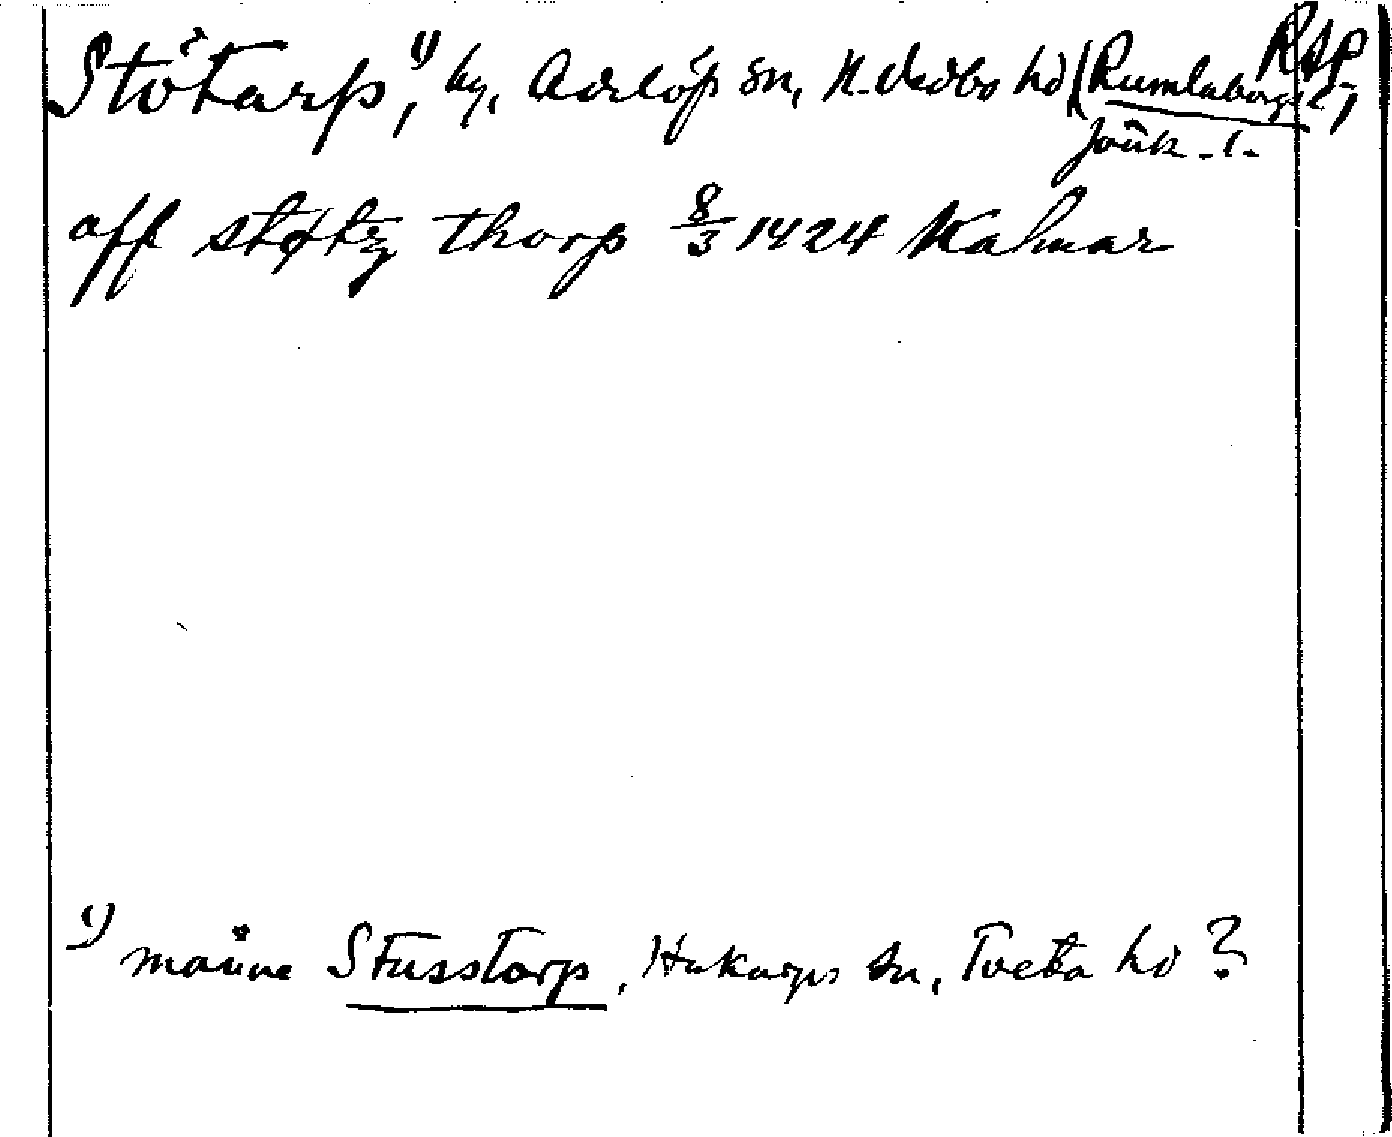 RAP
Stötarp,¹⁾ by, Adelöf sn, N. Vedbo hd (Rumlaborgs l.,
Jönk. l.
aff støtz thorp 8/3 1424 Kalmar
1) månne Stusstorp, Hakarps sn, Tveta hd?